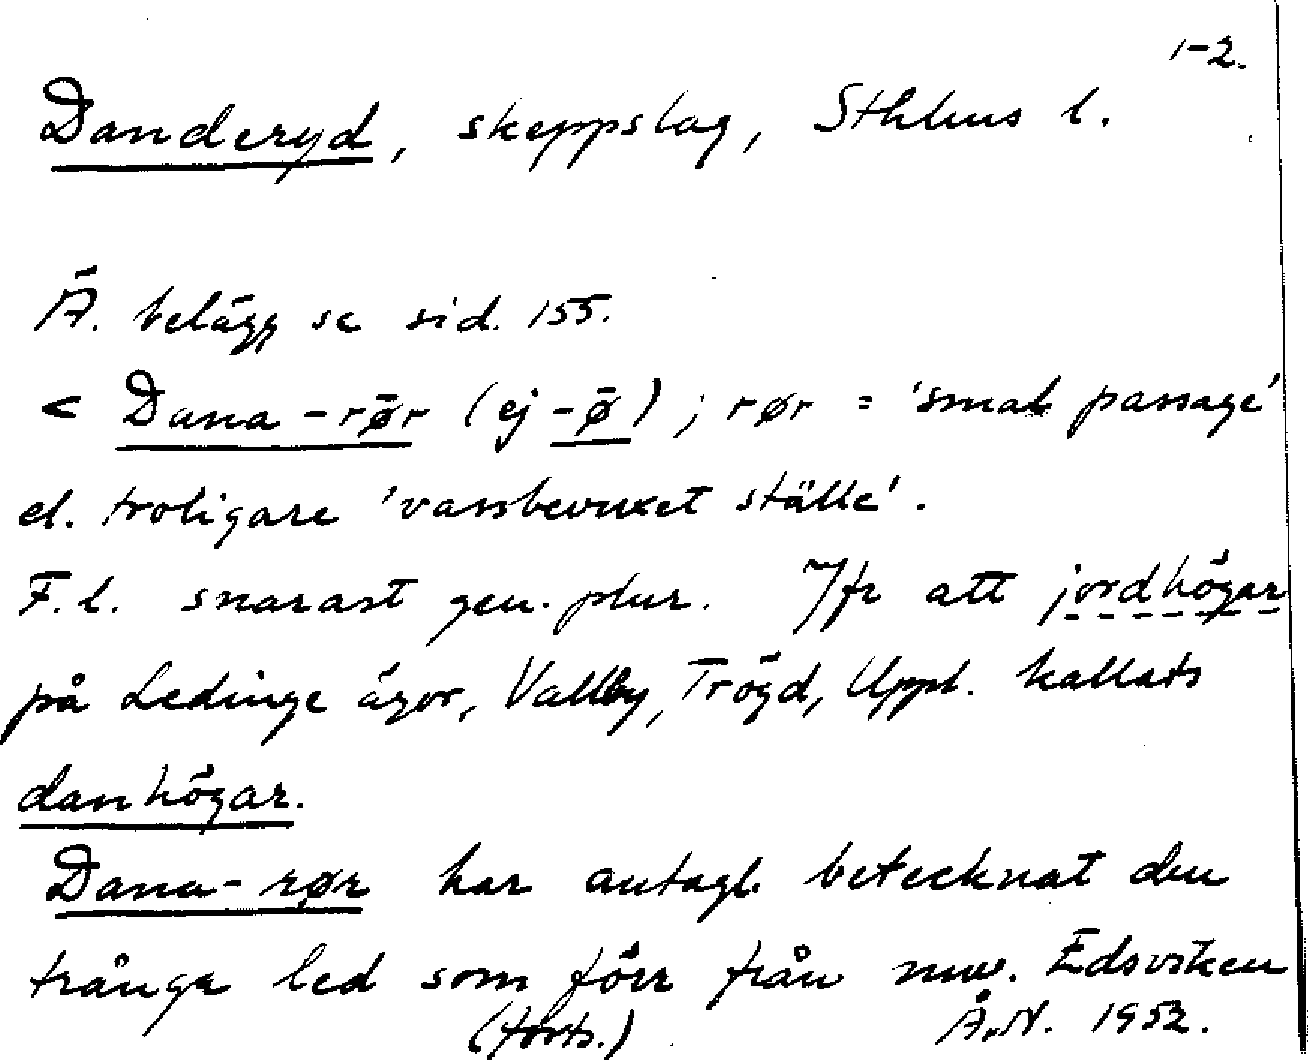 1-2.
Danderyd, skeppslag, Sthlms l.
Ä. belägg se sid. 155.
< Dana-rø̄r (ej -ø̄); rør = 'smal passage'
el. troligare 'vassbevuxet ställe'.
F.l. snarast gen. plur. Jfr att jordhögar
på Ledinge ägor, Vallby, Trögd, Uppl. kallats
danhögar.
Dana-rør har antagl. betecknat den
trånga led som förr från nuv. Edsviken
(forts.) Å.N. 1952.